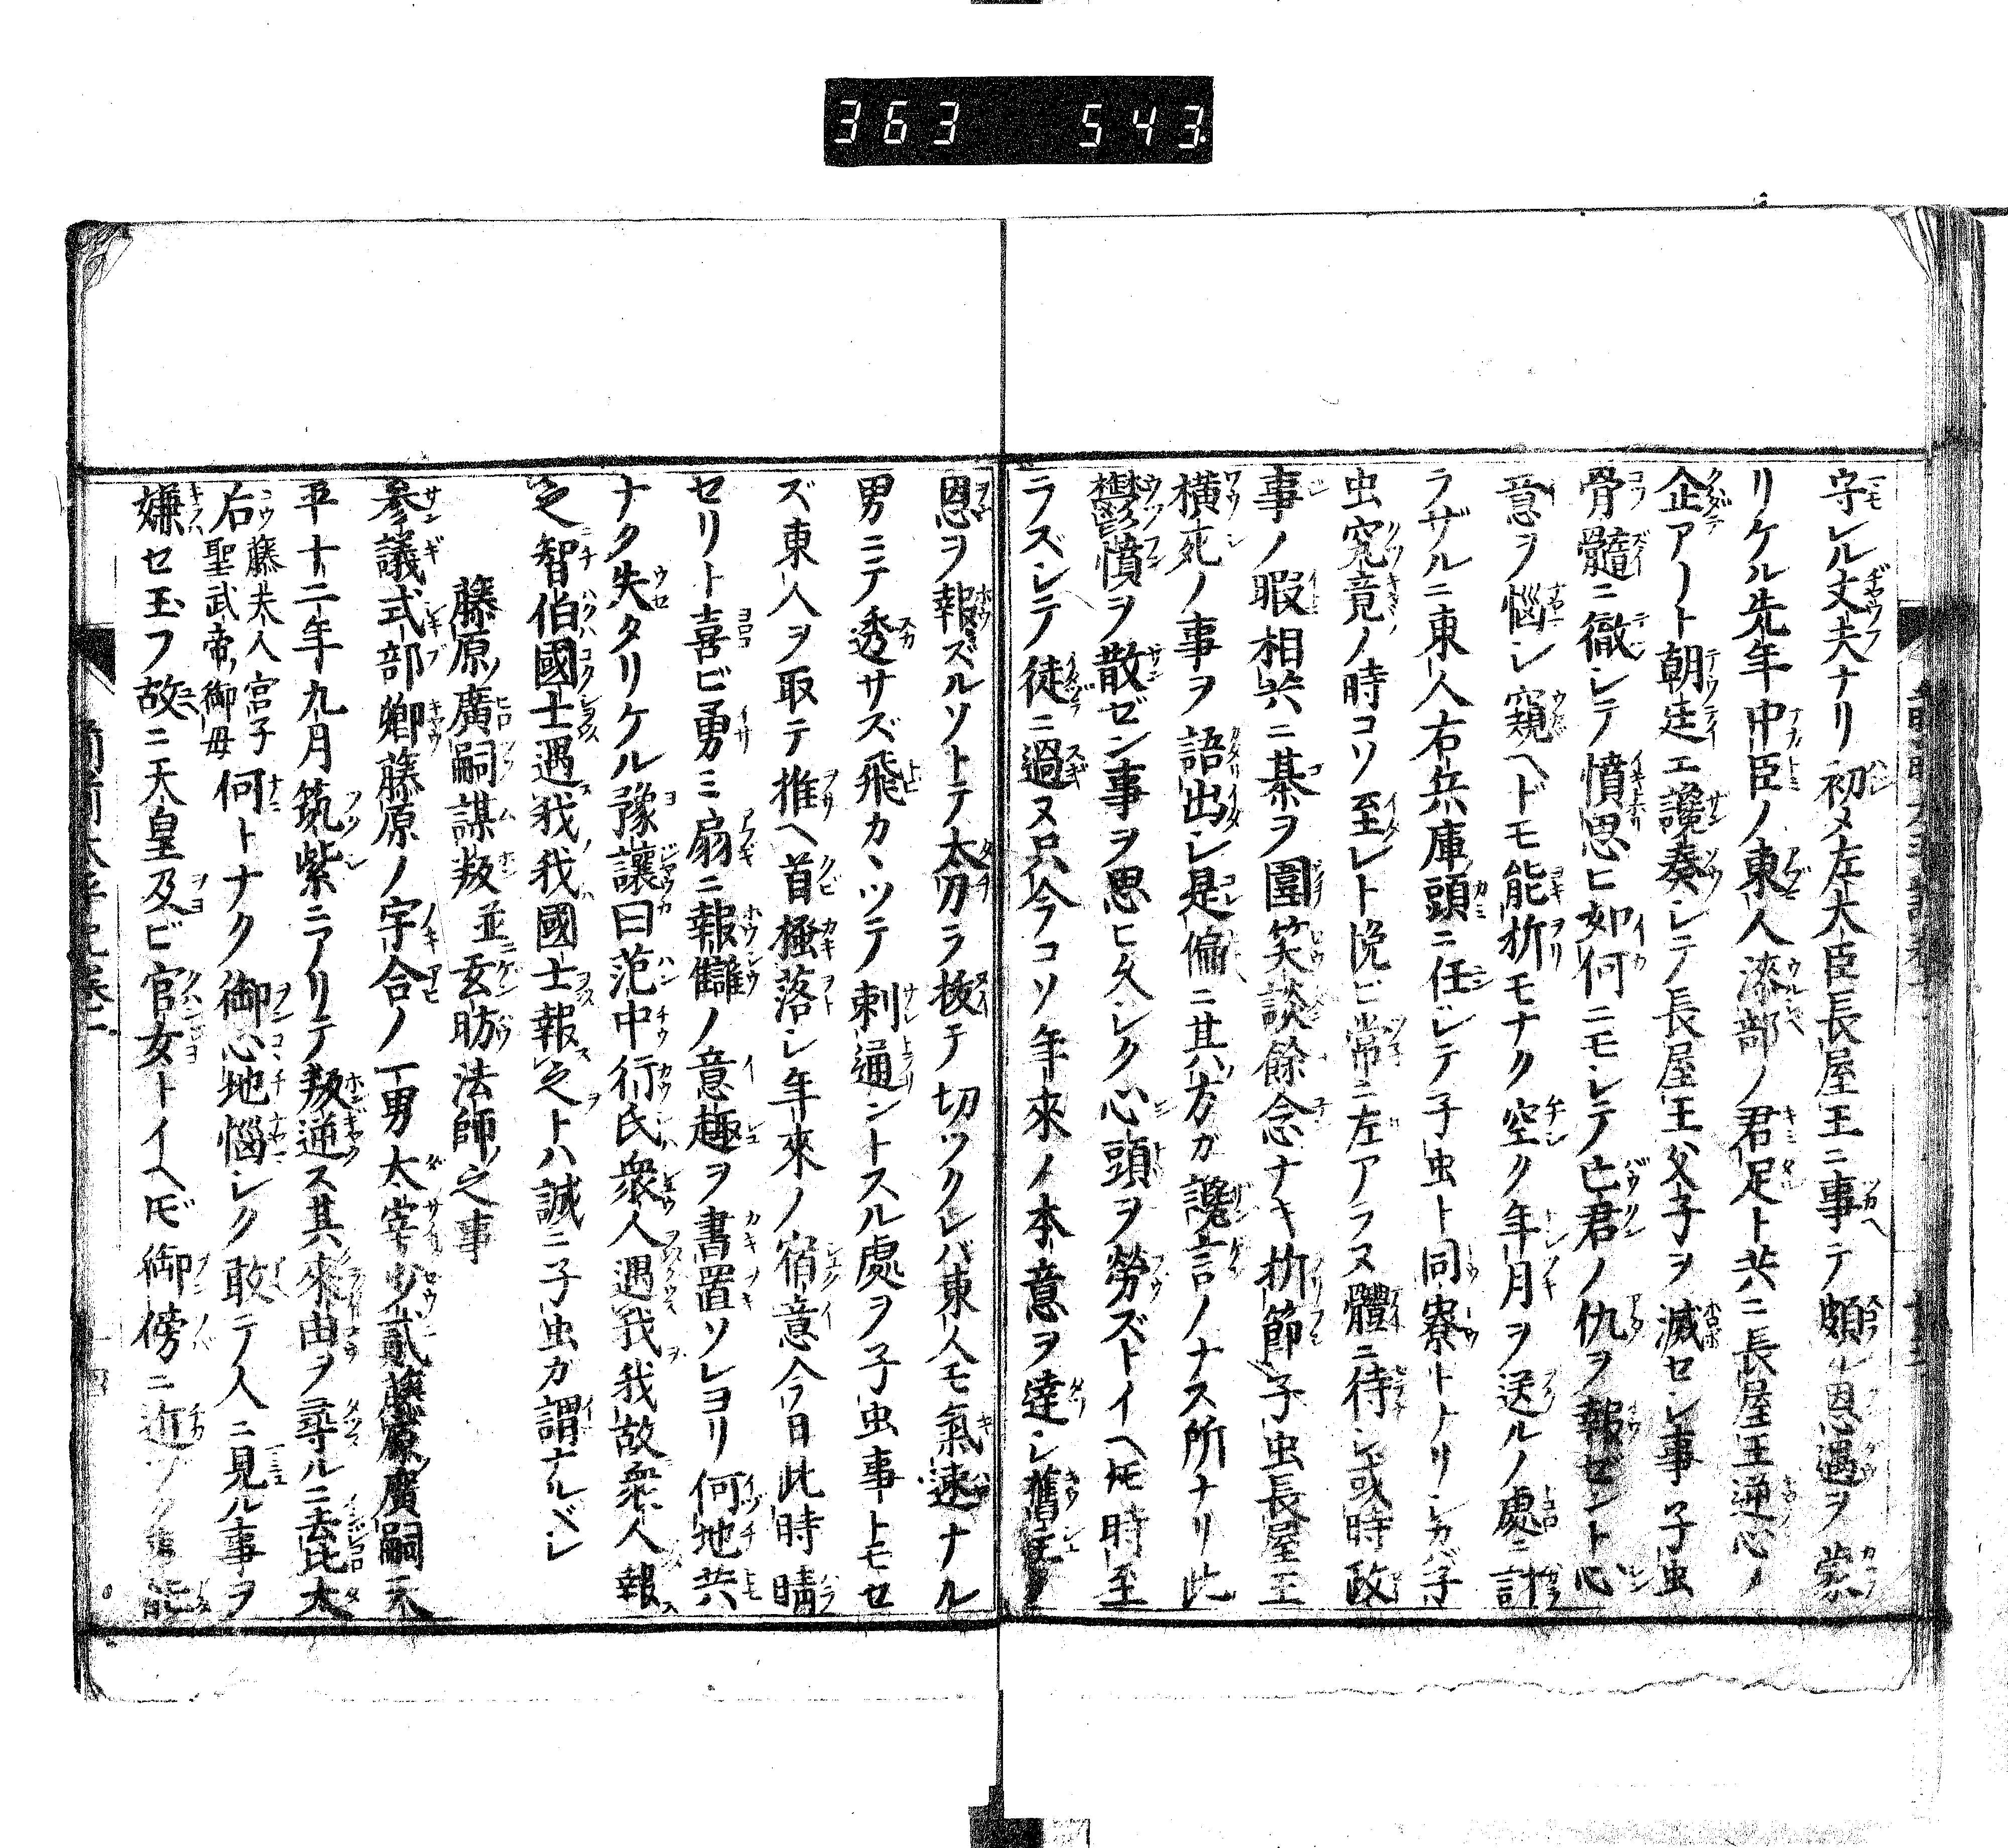 363 543
守レル丈夫ナリ初メ左大臣長屋王ニ事テ頗ル恩遇ヲ蒙
リケル先年中臣ノ東人漆部ノ君足ト共ニ長屋王逆心ノ
企アノト朝廷エ讒奏シテ長屋王父子ヲ滅セシ事子虫
骨髓ニ徹シテ憤思ヒ如何ニモシテ亡君ノ仇ヲ報ゼント心
意ヲ惱シ窺ヘドモ能折モナク空ク年月ヲ送ルノ處ニ計
ラザルニ東人右兵庫頭ニ任シテ子虫ト同寮トナリシカバ子
虫究竟ノ時コソ至レト悦ビ常ニ左アラヌ體ニ待シ或時政
事ノ暇相共ニ棊ヲ圍笑談餘念ナキ折節子虫長屋王
横死ノ事ヲ語出シ是偏ニ其方ガ讒言ノナス所ナリ此
鬱憤ヲ散ゼン事ヲ思ヒ久シク心頭ヲ勞ズトイヘ𪜈時至
ラズシテ徒ニ過ヌ只今コソ年來ノ本意ヲ達シ舊主ノ
恩ヲ報ズルソトテ太刀ヲ拔テ切ツクレバ東人モ氣速ナル
男ニテ透サズ飛カヽツテ刺通ントスル處ヲ子虫事トモセ
ズ東人ヲ取テ推ヘ首搔落シ年來ノ宿意今日此時晴
セリト喜ビ勇ミ扇ニ報讎ノ意趣ヲ書置ソレヨリ何地共
ナク失タリケル豫讓曰范中行氏衆人遇我我故衆人報
之智伯國士遇我我國士報之トハ誠ニ子虫ガ謂ナルベシ
藤原廣嗣謀叛並玄昉法師之事
參議式部卿藤原ノ宇合ノ一男太宰少貳藤原廣嗣天
平十二年九月筑紫ニアリテ叛逆ス其來由ヲ尋ルニ去比太
右藤夫人宮子聖武帝御母何トナク御心地惱シク敢テ人ニ見ル事ヲ
嫌セ玉フ故ニ天皇及ビ官女トイヘ𪜈御傍ニ近ヅク事能